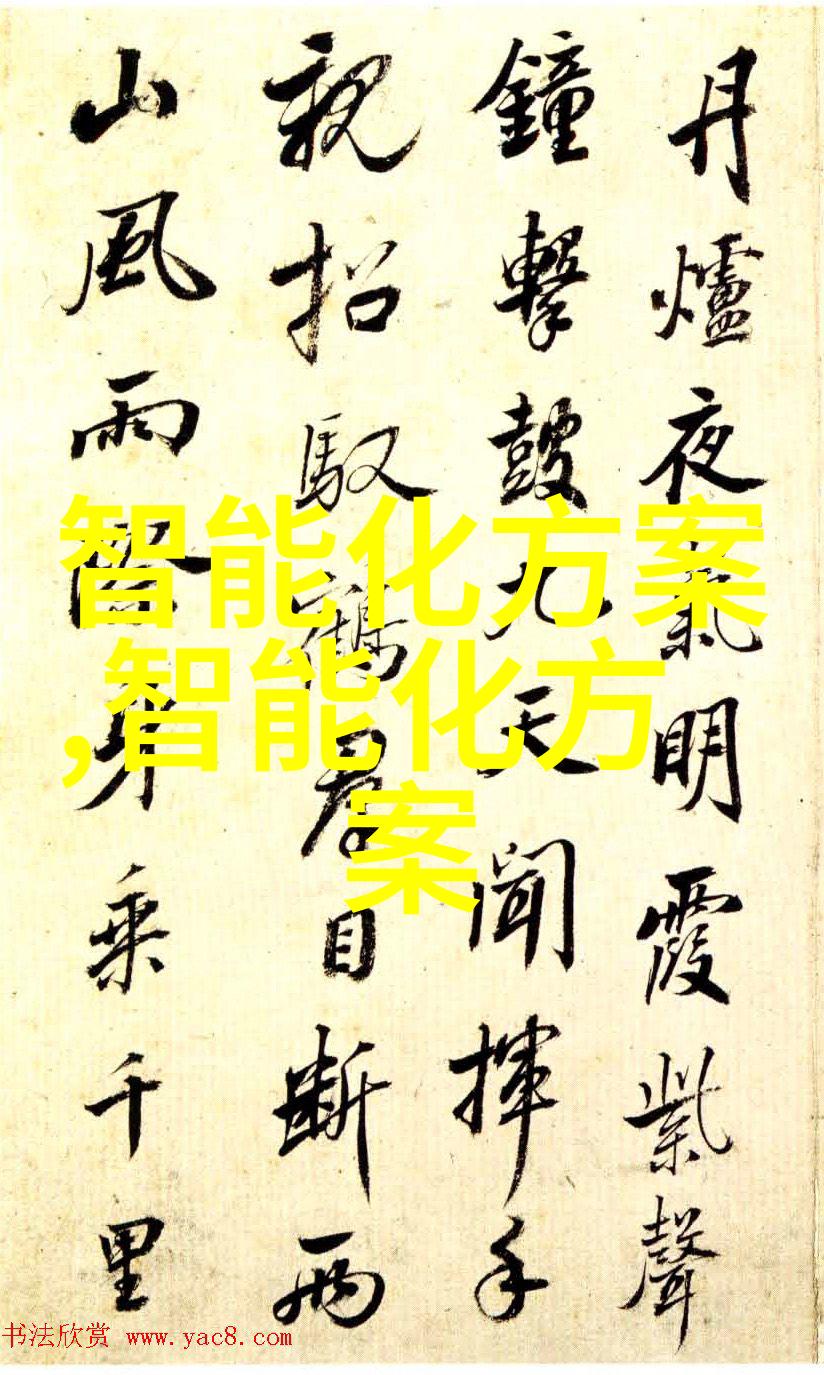 丹爐夜氣明霞紫聲
鐘擊鼓九天聞揮手
親招馭鶴群目斷兩
山風雨身乘千里
智能化方案
,智能化方
案
书法欣赏 www.yac8.com